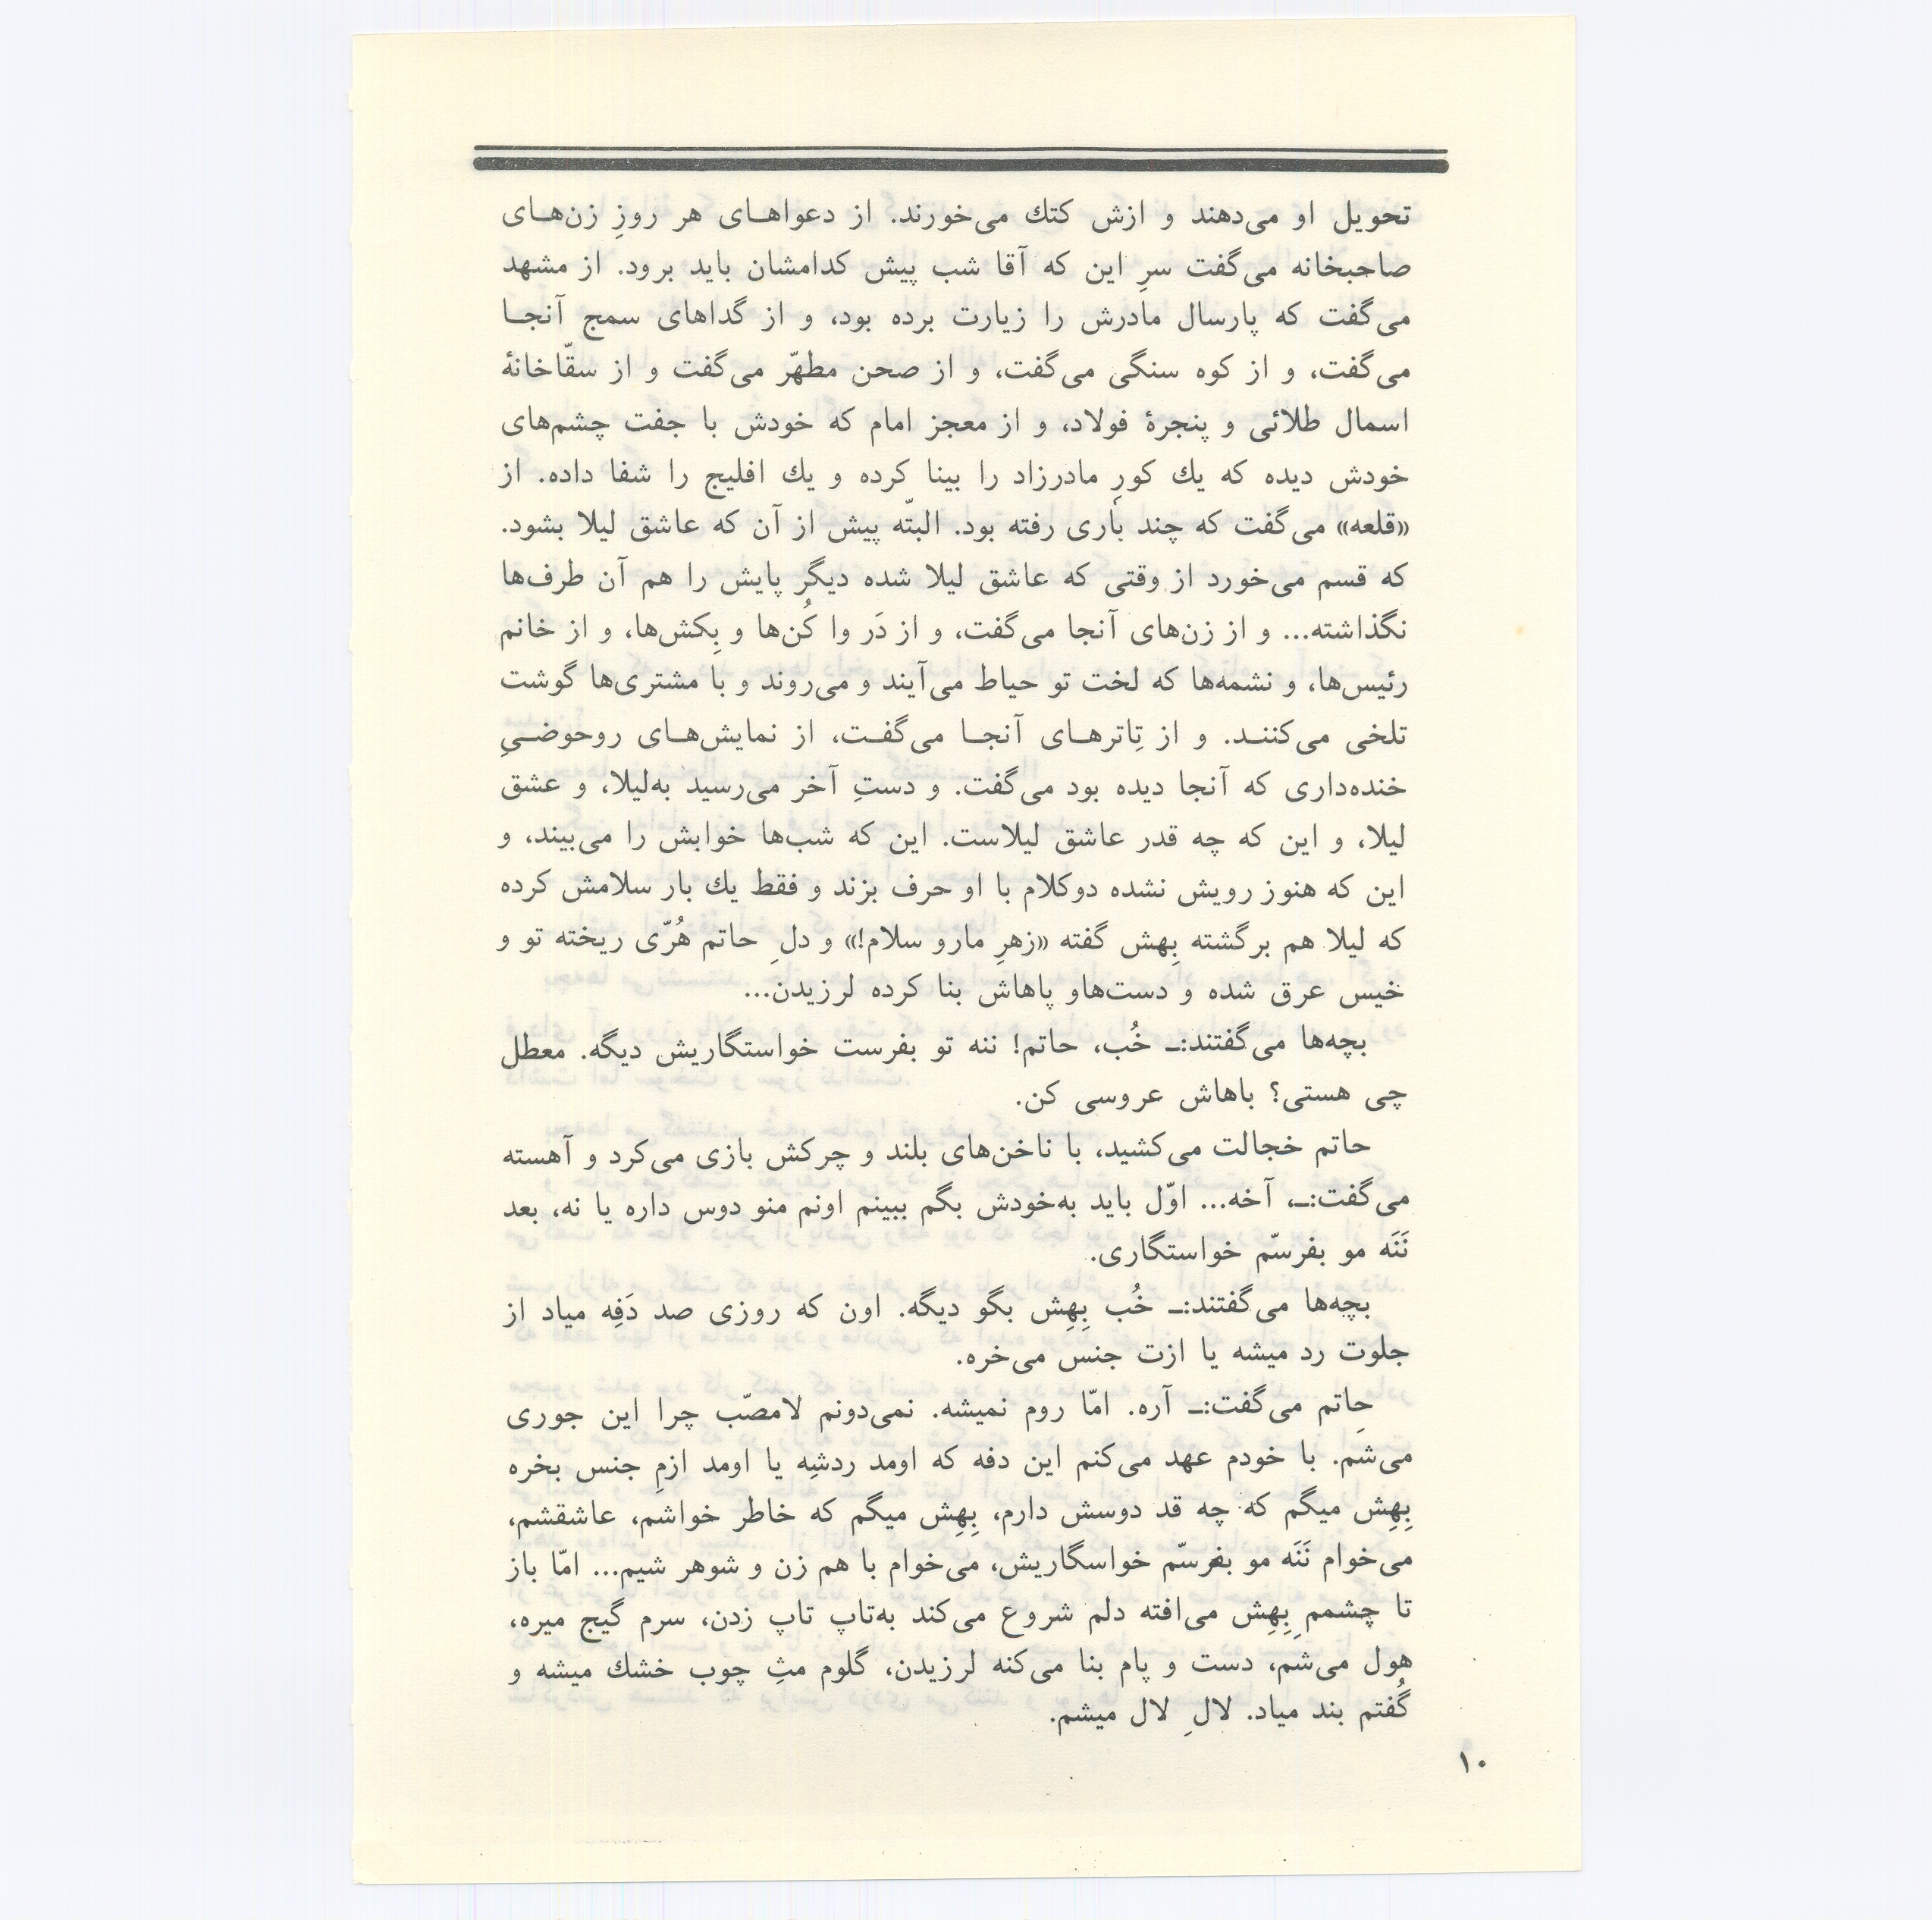 تحویل او می‌دهند و ازش کتك می‌خورند. از دعواهـای هر روزِ زن‌هـای
صاحبخانه می‌گفت سرِ این که آقا شب پیش کدامشان باید برود. از مشهد
می‌گفت که پارسال مادرش را زیارت برده بود، و از گداهای سمج آنجـا
می‌گفت، و از کوه سنگی می‌گفت، و از صحن مطهّر می‌گفت و از سقّاخانهٔ
اسمال طلائی و پنجرهٔ فولاد، و از معجز امام که خودش با جفت چشم‌های
خودش دیده که یك کورِ مادرزاد را بینا کرده و یك افلیج را شفا داده. از
«قلعه» می‌گفت که چند باری رفته بود. البتّه پیش از آن که عاشق لیلا بشود.
که قسم می‌خورد از وقتی که عاشق لیلا شده دیگر پایش را هم آن طرف‌ها
نگذاشته... و از زن‌های آنجا می‌گفت، و از دَر وا کُن‌ها و بِکش‌ها، و از خانم
رئیس‌ها، و نشمه‌ها که لخت تو حیاط می‌آیند و می‌روند و با مشتری‌ها گوشت
تلخی می‌کننـد. و از تِاترهـای آنجـا می‌گفـت، از نمایش‌هـای روحوضـیِ
خنده‌داری که آنجا دیده بود می‌گفت. و دستِ آخر می‌رسید به‌لیلا، و عشق
لیلا، و این که چه قدر عاشق لیلاست. این که شب‌ها خوابش را می‌بیند، و
این که هنوز رویش نشده دوکلام با او حرف بزند و فقط یك بار سلامش کرده
که لیلا هم برگشته بِهش گفته «زهرِ مارو سلام!» و دلِ حاتم هُرّی ریخته تو و
خیس عرق شده و دست‌هاو پاهاش بنا کرده لرزیدن...
بچه‌ها می‌گفتند:ـ خُب، حاتم! ننه تو بفرست خواستگاریش دیگه. معطل
چی هستی؟ باهاش عروسی کن.
حاتم خجالت می‌کشید، با ناخن‌های بلند و چرکش بازی می‌کرد و آهسته
می‌گفت:ـ، آخه... اوّل باید به‌خودش بگم ببینم اونم منو دوس داره یا نه، بعد
نَنَه مو بفرسّم خواستگاری.
بچه‌ها می‌گفتند:ـ خُب بِهِش بگو دیگه. اون که روزی صد دَفِه میاد از
جلوت رد میشه یا ازت جنس می‌خره.
حاتم می‌گفت:ـ آره. امّا روم نمیشه. نمی‌دونم لامصّب چرا این جوری
می‌شَم. با خودم عهد می‌کنم این دفه که اومد ردشِه یا اومد ازم جنس بخره
بِهِش میگم که چه قد دوسش دارم، بِهِش میگم که خاطر خواشم، عاشقشم،
می‌خوام نَنَه مو بفرسّم خواسگاریش، می‌خوام با هم زن و شوهر شیم... امّا باز
تا چشمم بِهِش می‌افته دلم شروع می‌کند به‌تاپ تاپ زدن، سرم گیج میره،
هول می‌شَم، دست و پام بنا می‌کنه لرزیدن، گلوم مثِ چوب خشك میشه و
گُفتم بند میاد. لالِ لال میشم.
۱۰